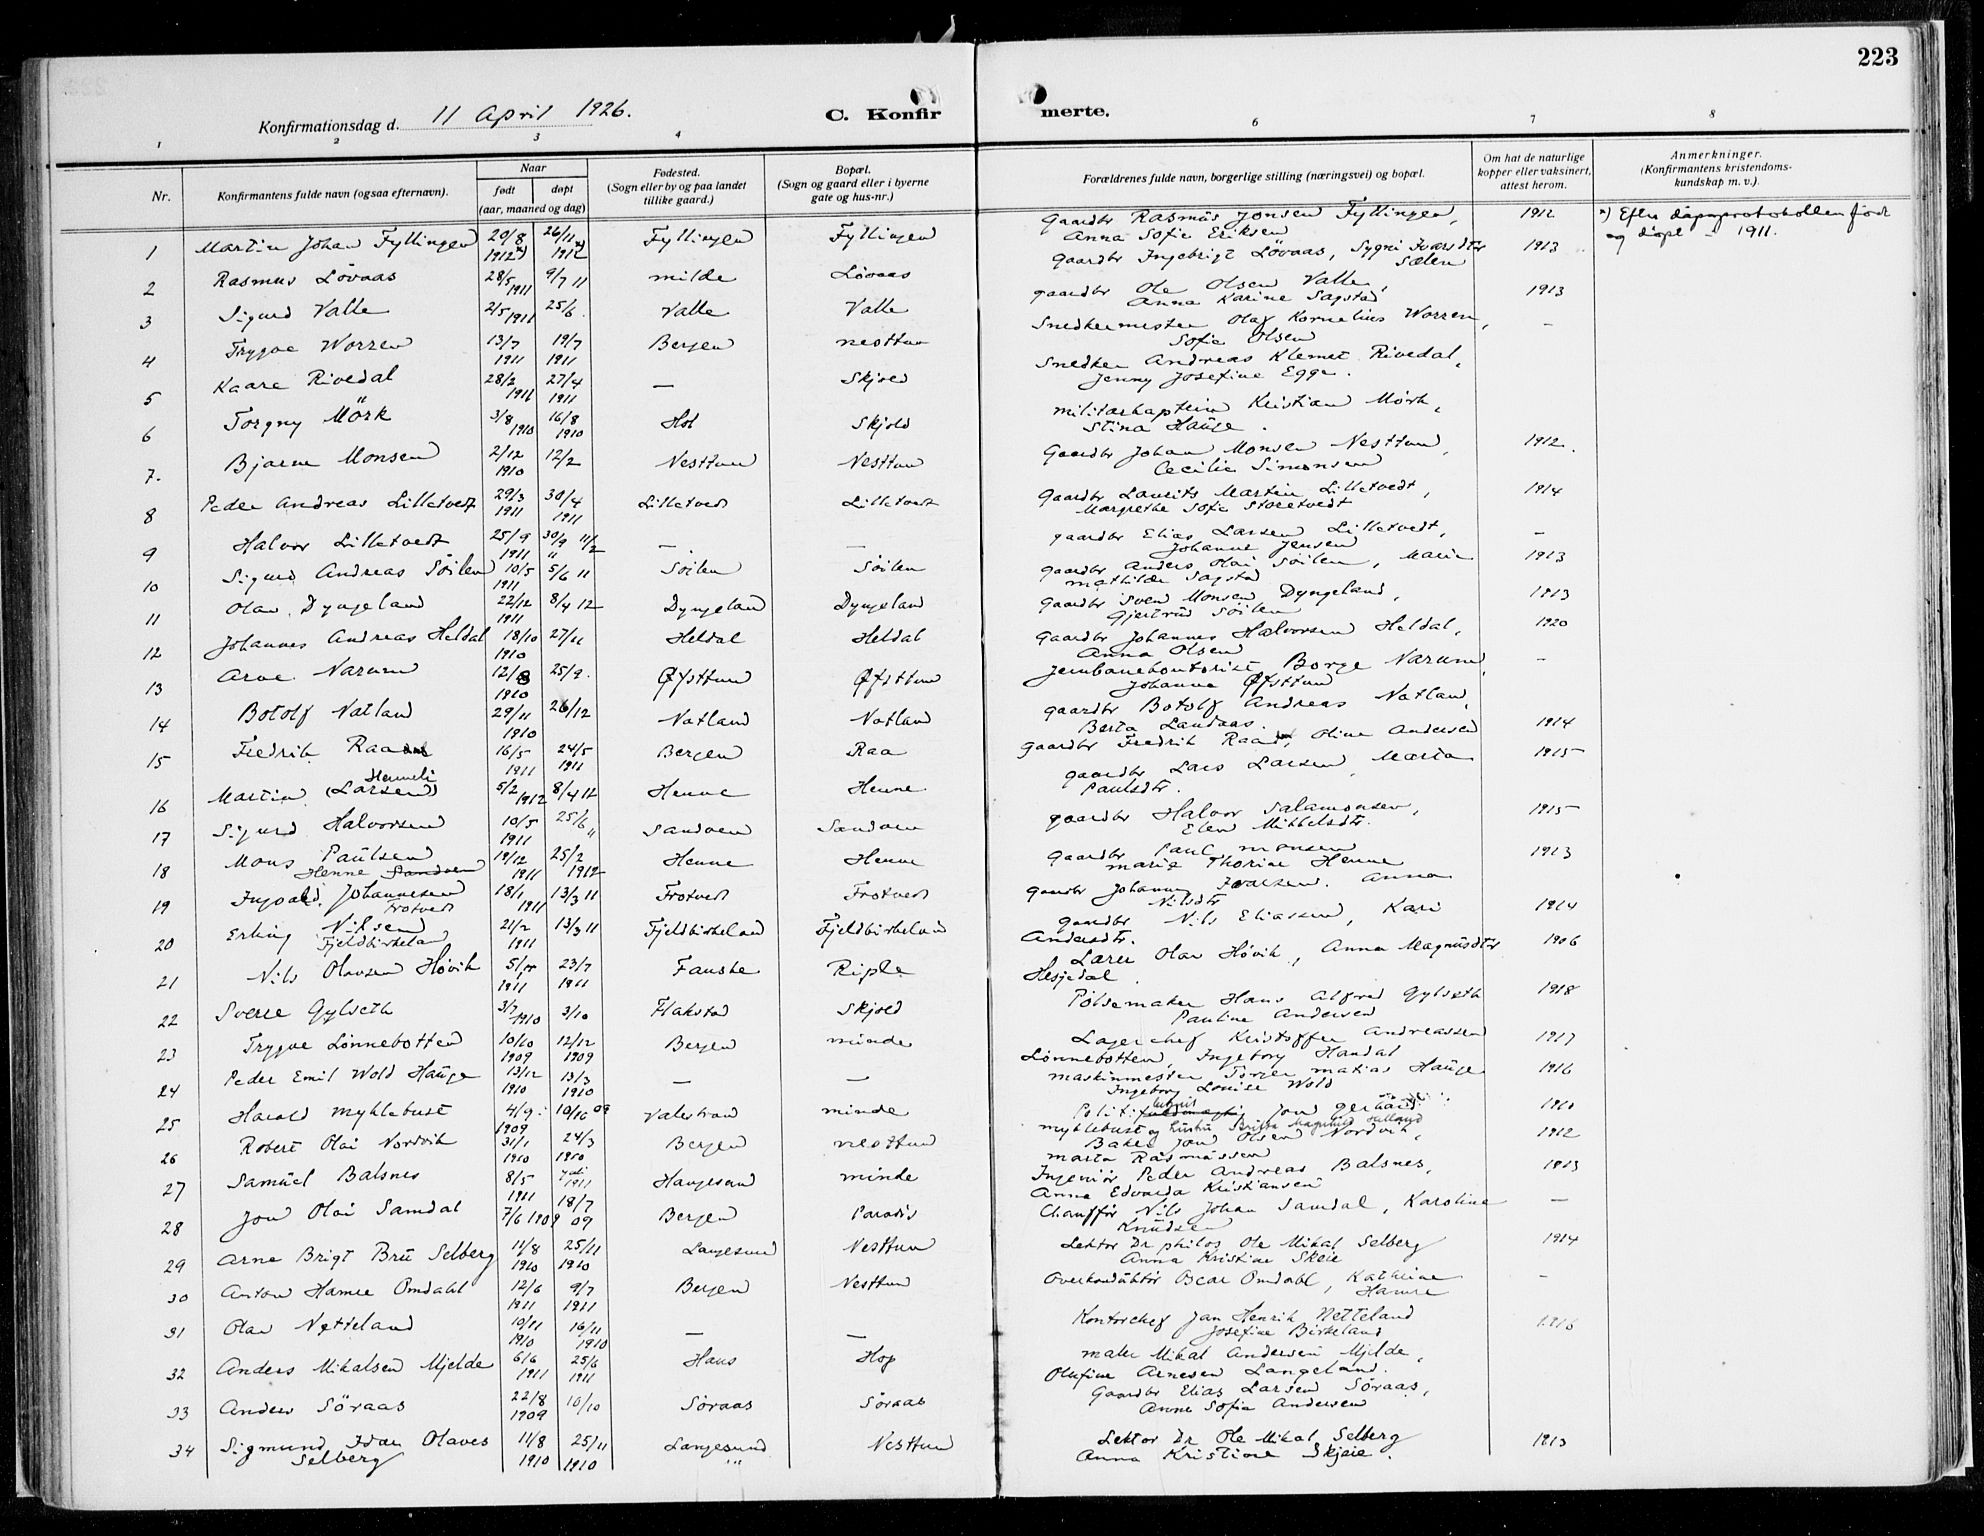 223
Konfirmationsdag d. 11 April 1926.
C. Konfirmerte.
1 2 3 4 6 7 8
Nr.
Konfirmantens fulde navn (ogsaa efternavn).
Naar
født døpt
(aar, maaned og dag)
Fødested.
(Sogn eller by og paa landet tillike gaard.)
Bopæl.
(Sogn og gaard eller i byerne gate og hus-nr.)
Forældrenes fulde navn, borgerlige stilling (næringsvei) og bopæl.
Om hat de naturlige kopper eller vaksinert, attest herom.
Anmerkninger.
(Konfirmantens kristendomskundskap m. v.).
1 Martin Johan Fyllingen 29/8 1912 x) 26/11 1912 x) Fyllingen Fyllingen Gaardbr Rasmus Jonsen Fyllingen, Anna Sofie Eriksen 1912 x) Efter dåpsprotokollen født og døpt – 1911.
2 Rasmus Lövaas 28/5 1911 9/7 11 Milde Lövaas Gaardbr Ingebrigt Lövaas, Sygni Ivarsdtr Sælen 1913
3 Sigurd Valle 2/5 1911 25/6. Valle Valle gaardbr Ole Olsen Valle, Anna Karine Sagstad 1913
4 Trygve Worren 13/7 1911 19/7 1911 Bergen Nesttun Snedkermester Olaf Kornelius Worren, Sofie Olsen –
5 Kaare Rivedal 28/2 1911 27/4 1911 — Skjold Snedker Andreas Klemet Rivedal, Jenny Josefine Egge.
6 Torgny Mörk 3/8 1910 16/8 1910 Hol Skjold Militærkaptein Kristian Mörk, Stina Hauge.
7. Bjarne Monsen 2/12 1910 12/2 Nesttun Nesttun Gaardbr Johan Monsen Nesttun, Cecilie Simonsen 1912.
8 Peder Andreas Lilletvedt 29/3 1911 30/4 1911 Lilletvedt Lilletvedt Gaardbr Laurits Martin Lilletvedt, Margrethe Sofie Storetvedt 1914
9 Halvor Lilletvedt 25/9 1911 — — gaardbr Elias Larsen Lilletvedt, Johanne Jensen –
10 Sigurd Andreas Söilen 10/5 1911 5/6 11 Söilen Söilen gaardbr Anders Olai Söilen, Marie Mathilde Sagstad 1913
11 Olav Dyngeland 22/12 1911 8/4 12 Dyngeland Dyngeland gaardbr Sven Monsen Dyngeland, Gjertrud Söilen 1913
12 Johannes Andreas Heldal 18/10 1910 27/11 Heldal Heldal gaardbr Johannes Halvorsen Heldal, Anna Olsen 1920
13 Arve Narum 12/8 1910 25/9. Øfsttun Øfsttun Jernbanekontorist Borge Narum, Johanne Øfsttun –
14 Botolf Natland 29/11 1910 26/12 Natland Natland gaardbr Botolf Andreas Natland, Berta Landaas.
15 Fredrik Raa 16/5 1911 24/5 1911 Bergen Raa Gaardbr Fredrik Raa, Oline Andersen 1914
16 Martin (Larsen) Henneli 5/2 1912 8/4 12 Henne Henne gaardbr Lars Larsen, Marta Paulsdtr. 1915
17 Sigurd Halvorsen 10/5 1911 25/6 " Sandven Sandven gaardbr Halvor Salamonsen, Elen Mikkelsdtr. 1915
18 Mons Paulsen Henne Sandven 19/12 1911 25/2 1912 Henne Henne gaardbr Paul Monsen Marie Thorine Henne 1913
19 Ingvald Johannesen Trotvedt 18/1 1911 13/3 11 Trotvedt Trotvedt gaardbr Johannes Ivarsen. Anna Nilsdtr
20 Erling Nilsen Fjeldbirkeland 21/2 1911 13/3 11 Fjeldbirkeland Fjeldbirkeland gaardbr Nils Eliassen, Kari Andersdtr. 1914
21 Nils Olavsen Hövik 1911 23/7 1911 Fauske Riple Lærer Olav Hövik, Anna Magnusdtr Hesjedal. 1906
22 Sverre Gylseth 3/7 1910 3/10 Flakstad Skjold Pölsemaker Hans Alfred Gylseth Pauline Andersen 1918
23 Trygve Lönnebotten 10/10 1909 12/12 1909 Bergen Minde Lagerchef Kristoffer Andreassen Lönnebotten, Ingeborg Handal 1917
24 Peder Emil Wold Hauge 13/12 1910 13/3 1910 — — Maskinmester Torger Matias Hauge Ingeborg Louise Wold 1916
25 Harald Myklebust 4/9 1909 10/10 09 Valestrand Minde Politibetjent Jon Gerhard Myklebust og hustru Brita Magnhild Hetland 1910
26 Robert Olai Nordvik 31/1 1910 24/3 1910 Bergen Nesttun Baker Jon Olsen Nordvik, Marta Rasmussen 1912
27 Samuel Balsnes 8/5 1911 juli 1911 Haugesund Minde Ingeniör Peder Andreas Balsnes, Anna Edvarda Kristiansen 1913
28 Jon Olai Samdal 7/6 1909 18/7 09 Bergen Paradis Chaufför Nils Johan Samdal, Karoline Knudsen —
29 Arne Brigt Bru Selberg 11/8 1910 25/11 1910 Langesund Nesttun Lektor Dr philos Ole Mikal Selberg Anna Kristine Skeie 1914
30 Anton Hamre Omdahl 12/6 1911 9/7 1911 Bergen Nesttun Overkonduktör Oscar Omdahl, Kathrine Hamre –
31 Olav Netteland 10/11 1910 16/11 1910 — — Kontorchef Jan Henrik Netteland Josefine Birkeland 1916
32 Anders Mikalsen Mjelde 6/6 1911 25/6 1911 Haus Hop maler Mikal Andersen Mjelde, Olufine Arnesen Langeland.
33 Anders Söraas 22/8 1909 10/10 Söraas Söraas Gaardbr Elias Larsen Söraas, Anne Sofia Andersen
34 Sigmund Ivar Olaves Selberg 11/8 1910 25/11 1910 Langesund Nesttun Lektor Dr Ole Mikal Selberg Anna Kristine Skjeie. 1913